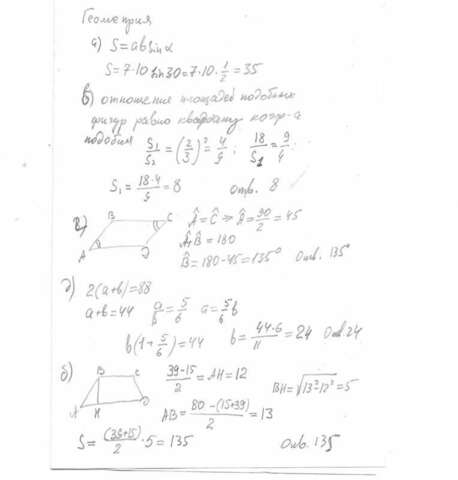 Геометрия
а) S = ab sin α
S = 7·10 sin 30 = 7·10·1/2 = 35
в) отношение площадей подобных
фигур равно квадрату коэф-а
подобия S1/S2 = (2/3)² = 4/9; 18/S1 = 9/4;
S1 = 18·4/9 = 8 Отв. 8
г) B C Â = Ĉ ⇒ Â = 90/2 = 45
A D Â+B̂ = 180
B̂ = 180-45 = 135° Отв. 135°
д) 2(a+b) = 88
a+b = 44 a/b = 5/6 a = 5/6 b
b(1+5/6) = 44 b = 44·6/11 = 24 Отв. 24
б) B C 39-15/2 = AH = 12
A H D BH = √13²-12² = 5
AB = 80-(15+39)/2 = 13
S = (39+15)/2 · 5 = 135 Отв. 135